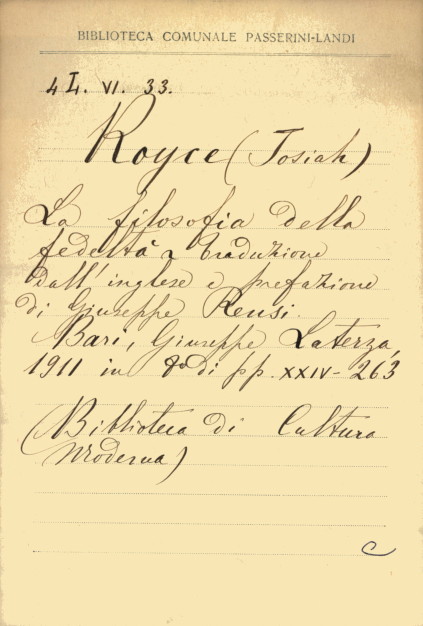 BIBLIOTECA COMUNALE PASSERINI-LANDI
4 I. VI. 33.
Royce (Josiah)
La filosofia della
fedeltà traduzione
dall'inglese e prefazione
di Giuseppe Rensi.
Bari, Giuseppe Laterza,
1911 in 8° di pp. XXIV-263
(Biblioteca di Cultura
Moderna)
C